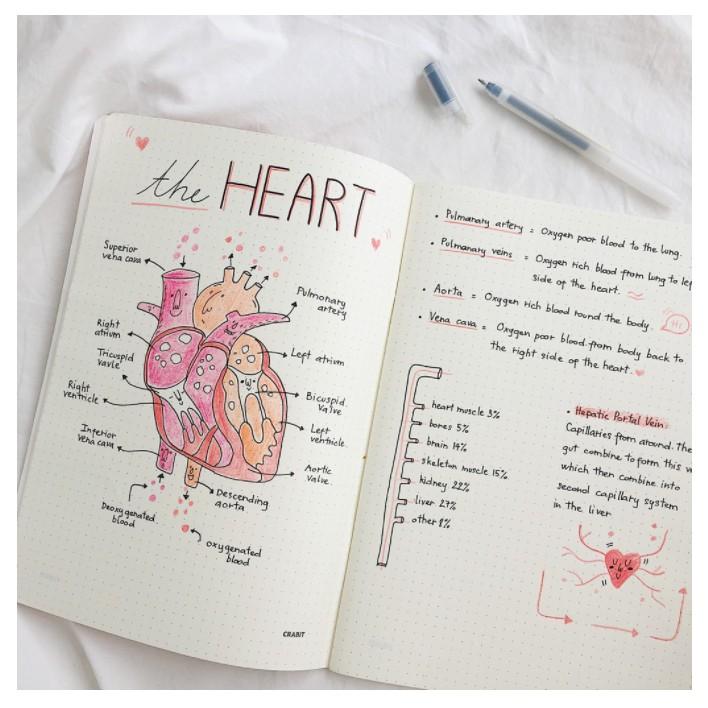 the HEART
Superior
vena cava
Pulmonary
artery
Right
atrium
Left atrium
Tricuspid
vavle
Right
ventricle
Bicuspid
Valve
Left
ventricle.
Inferior
vena cava
Aortic
valve.
Descending
aorta
Deoxygenated
blood
oxygenated
blood
CRABIT
• Pulmanary artery = Oxygen poor blood to the lung.
• Pulmanary veins = Oxygen rich blood from lung to lef
side of the heart.
• Aorta = Oxygen rich blood round the body.
Hi
• Vena cava = Oxygen poor blood from body back to
the right side of the heart.
heart muscle 3%
bones 5%
brain 14%
skeleton muscle 15%
kidney 22%
liver 27%
other 8%
• Hepatic Portal Vein
Capillaries from around. The
gut combine to form this v
which then combine into
second capillary system
in the liver